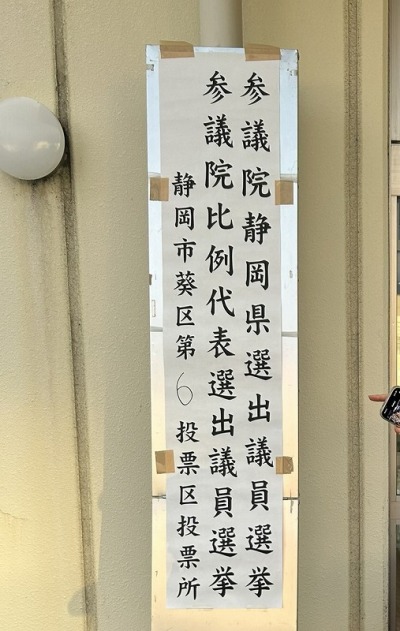 参議院静岡県選出議員選挙
参議院比例代表選出議員選挙
静岡市葵区第6投票区投票所